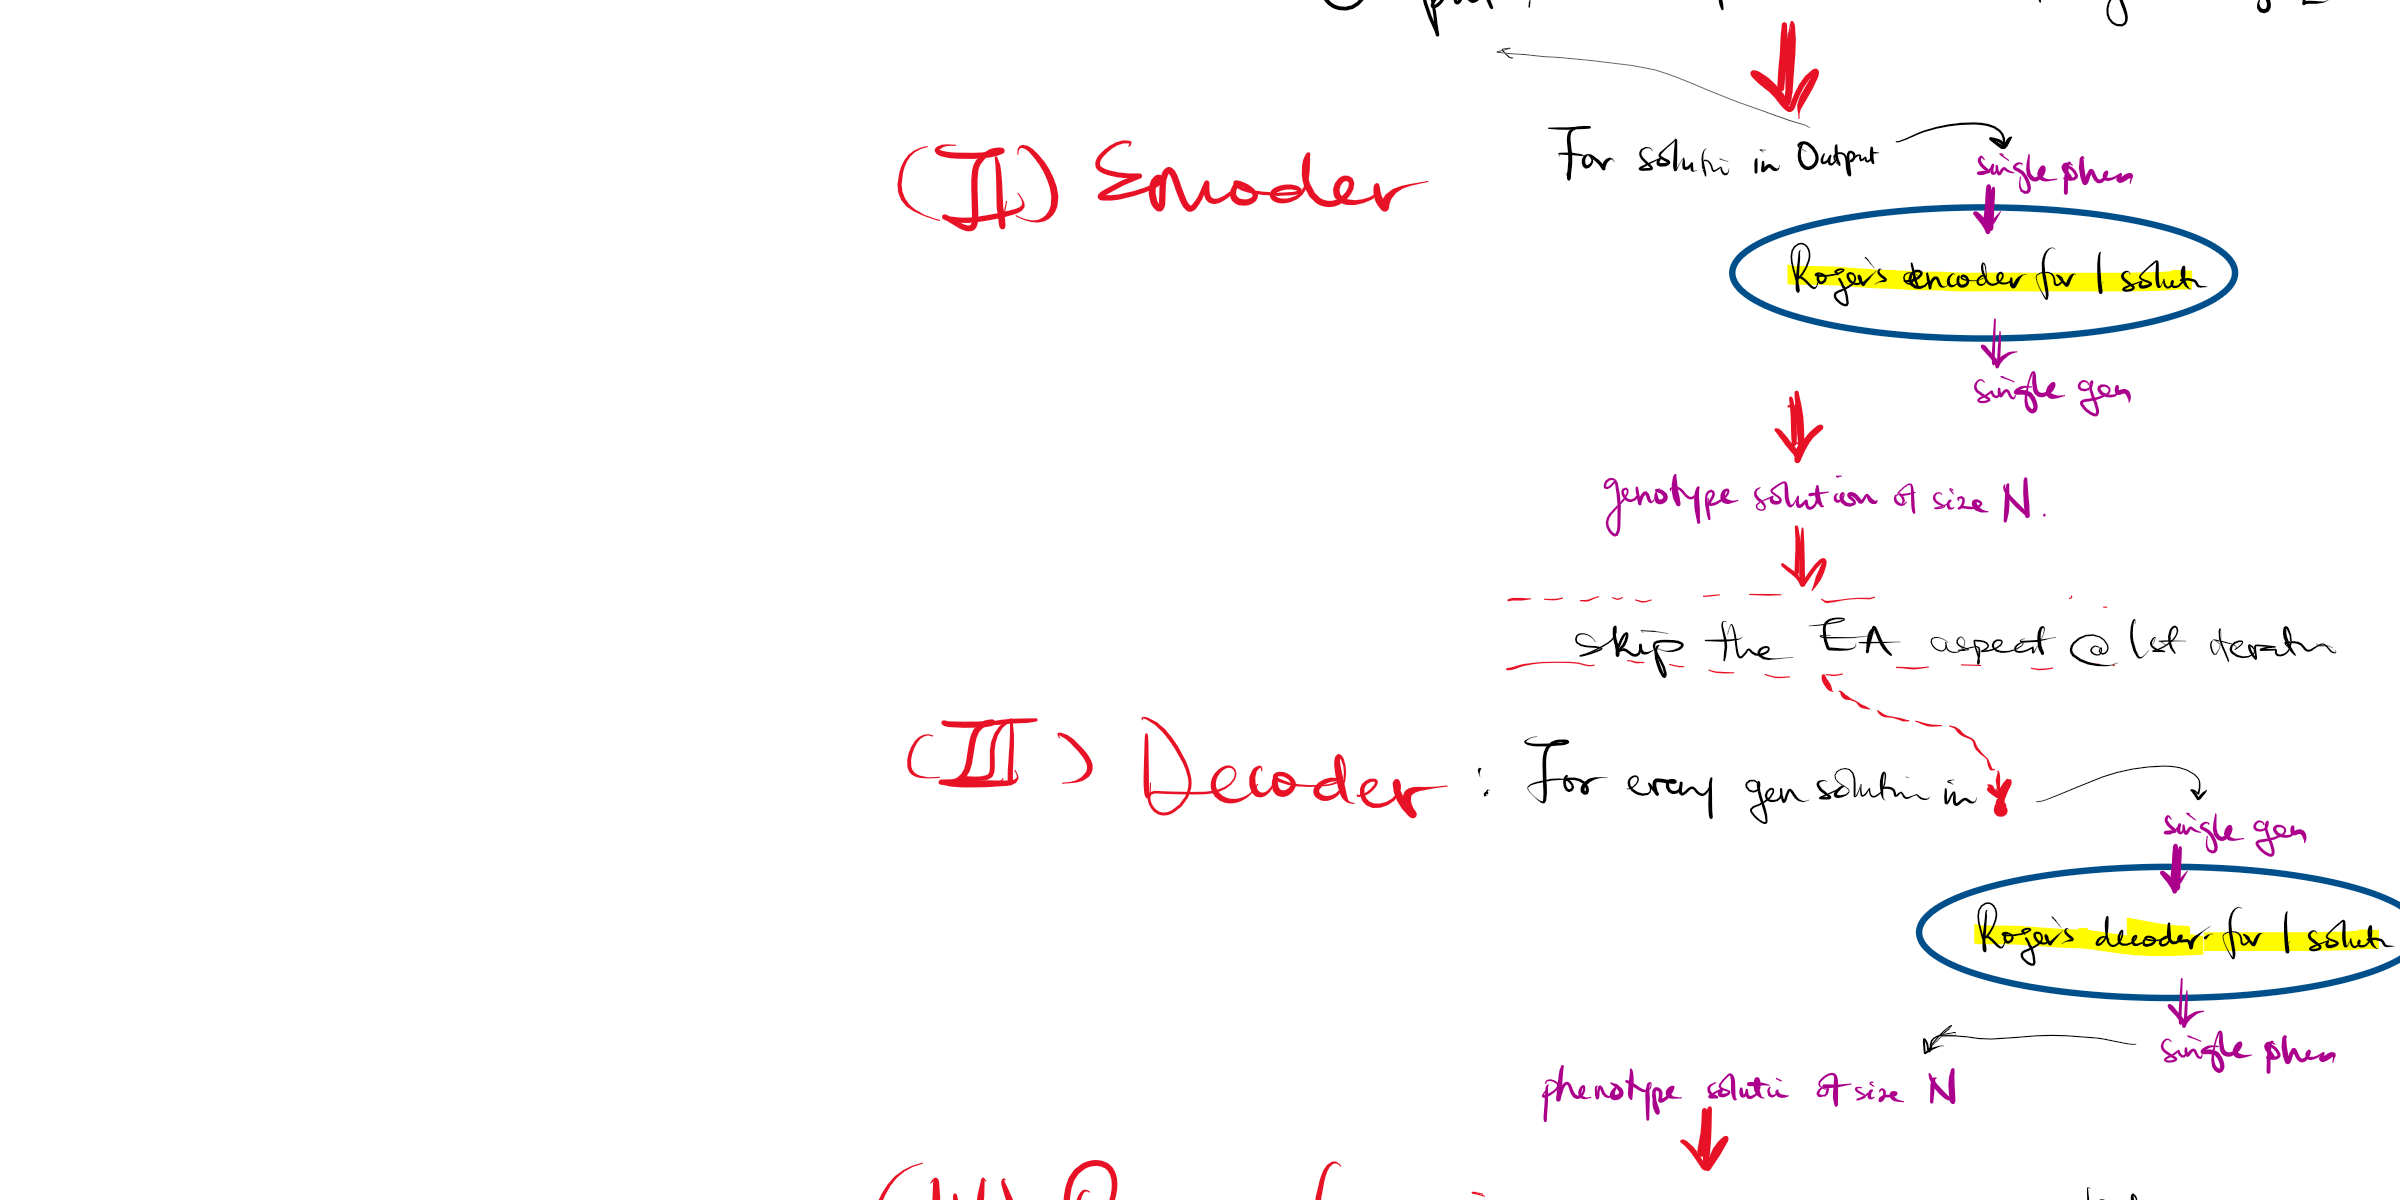 For soluti in Output
single phen
(II) Encoder
Roger's encoder for 1 soluti
single gen
genotype solution of size N.
skip the EA aspect @ 1st iteratn
(III) Decoder : For every gen solutin in
single gen
Roger's decoder for 1 soluti
single phen
phenotype soluti of size N